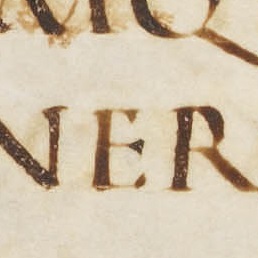 MQ
NER